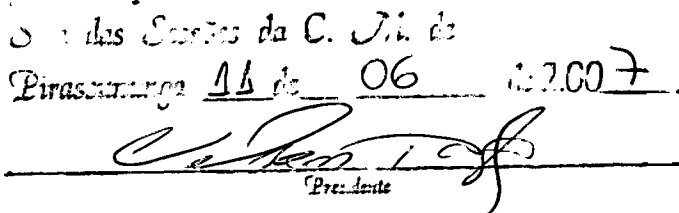 das Sessões da C. M. de
Pirassununga 11 de 06 de 2.007.
Presidente